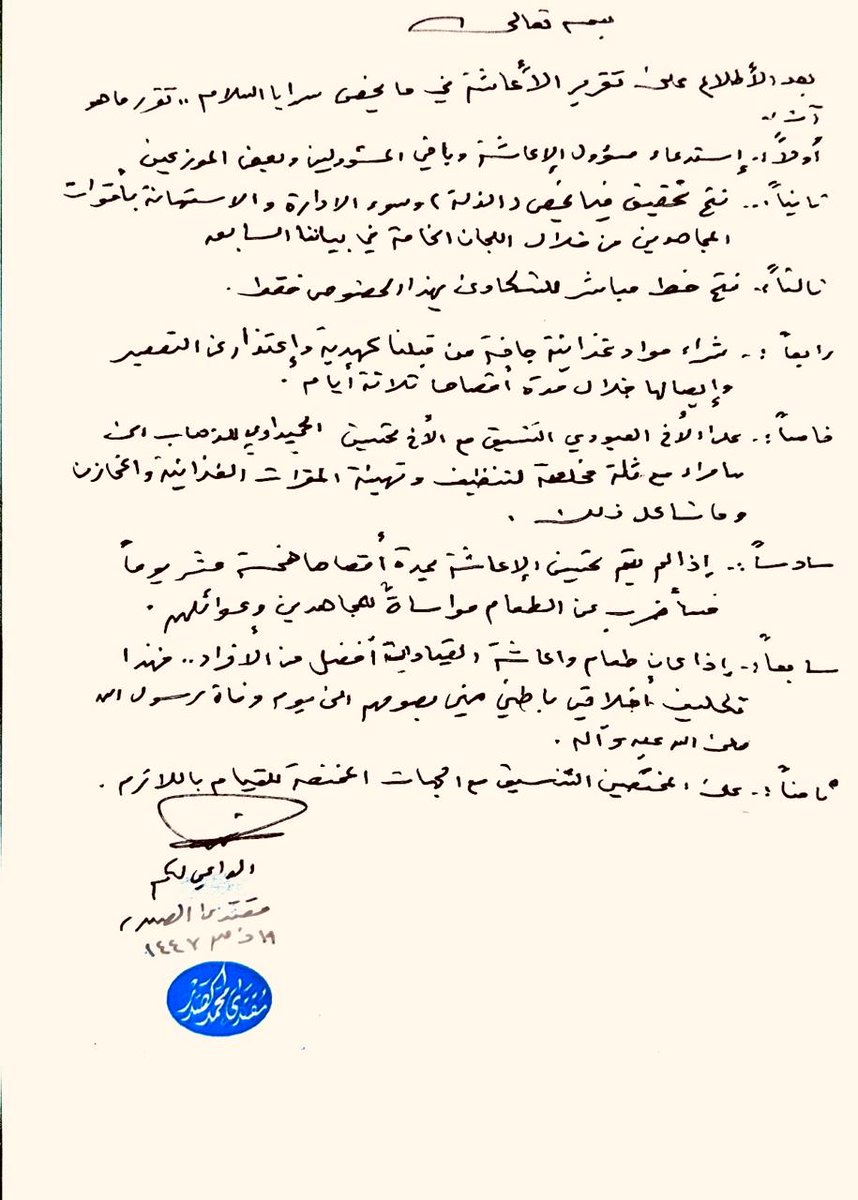 بسمه تعالى
بعد الأطلاع على تقرير الأعاشة في ما يخص سرايا السلام .. تقرر ما هو
آت :.
أولاً :. إستدعاء مسؤول الإعاشة وباقي المسؤولين وبعض الموزعين
ثانياً :. فتح تحقيق فيما يخص (الذلة) وسوء الادارة والاستهانة بأقوات
المجاهدين من خلال اللجان الخاصة في بياننا السابق
ثالثاً :. فتح خط مباشر للشكاوى بهذا الخصوص فقط .
رابعاً :. شراء مواد غذائية جافة من قبلنا كهدية وإعتذار عن التقصير
وإيصالها خلال مدة أقصاها ثلاثة أيام .
خامساً :. على الأخ العبودي التنسيق مع الأخ تحسين الحميداوي للذهاب الى
سامراء مع ثلة مخلصة لتنظيف وتهيئة المقرات الغذائية والمخازن
وما شاكل ذلك .
سادساً :. إذا لم يتم تحسين الإعاشة لمدة أقصاها خمسة عشر يوماً
فسأضرب عن الطعام مواساةً للمجاهدين وعوائلهم .
سابعاً :. إذا كان طعام واعاشة القيادات أفضل من الأفراد .. فهذا
تكليف أخلاقي باطني مني بصومهم الى يوم وفاة رسول الله
صلى الله عليه وآله .
ثامناً :. على المختصين التنسيق مع الجهات المختصة للقيام باللازم .
الداعي لكم
مقتدى الصدر
١٤٤٧
مقتدى محمد الصدر